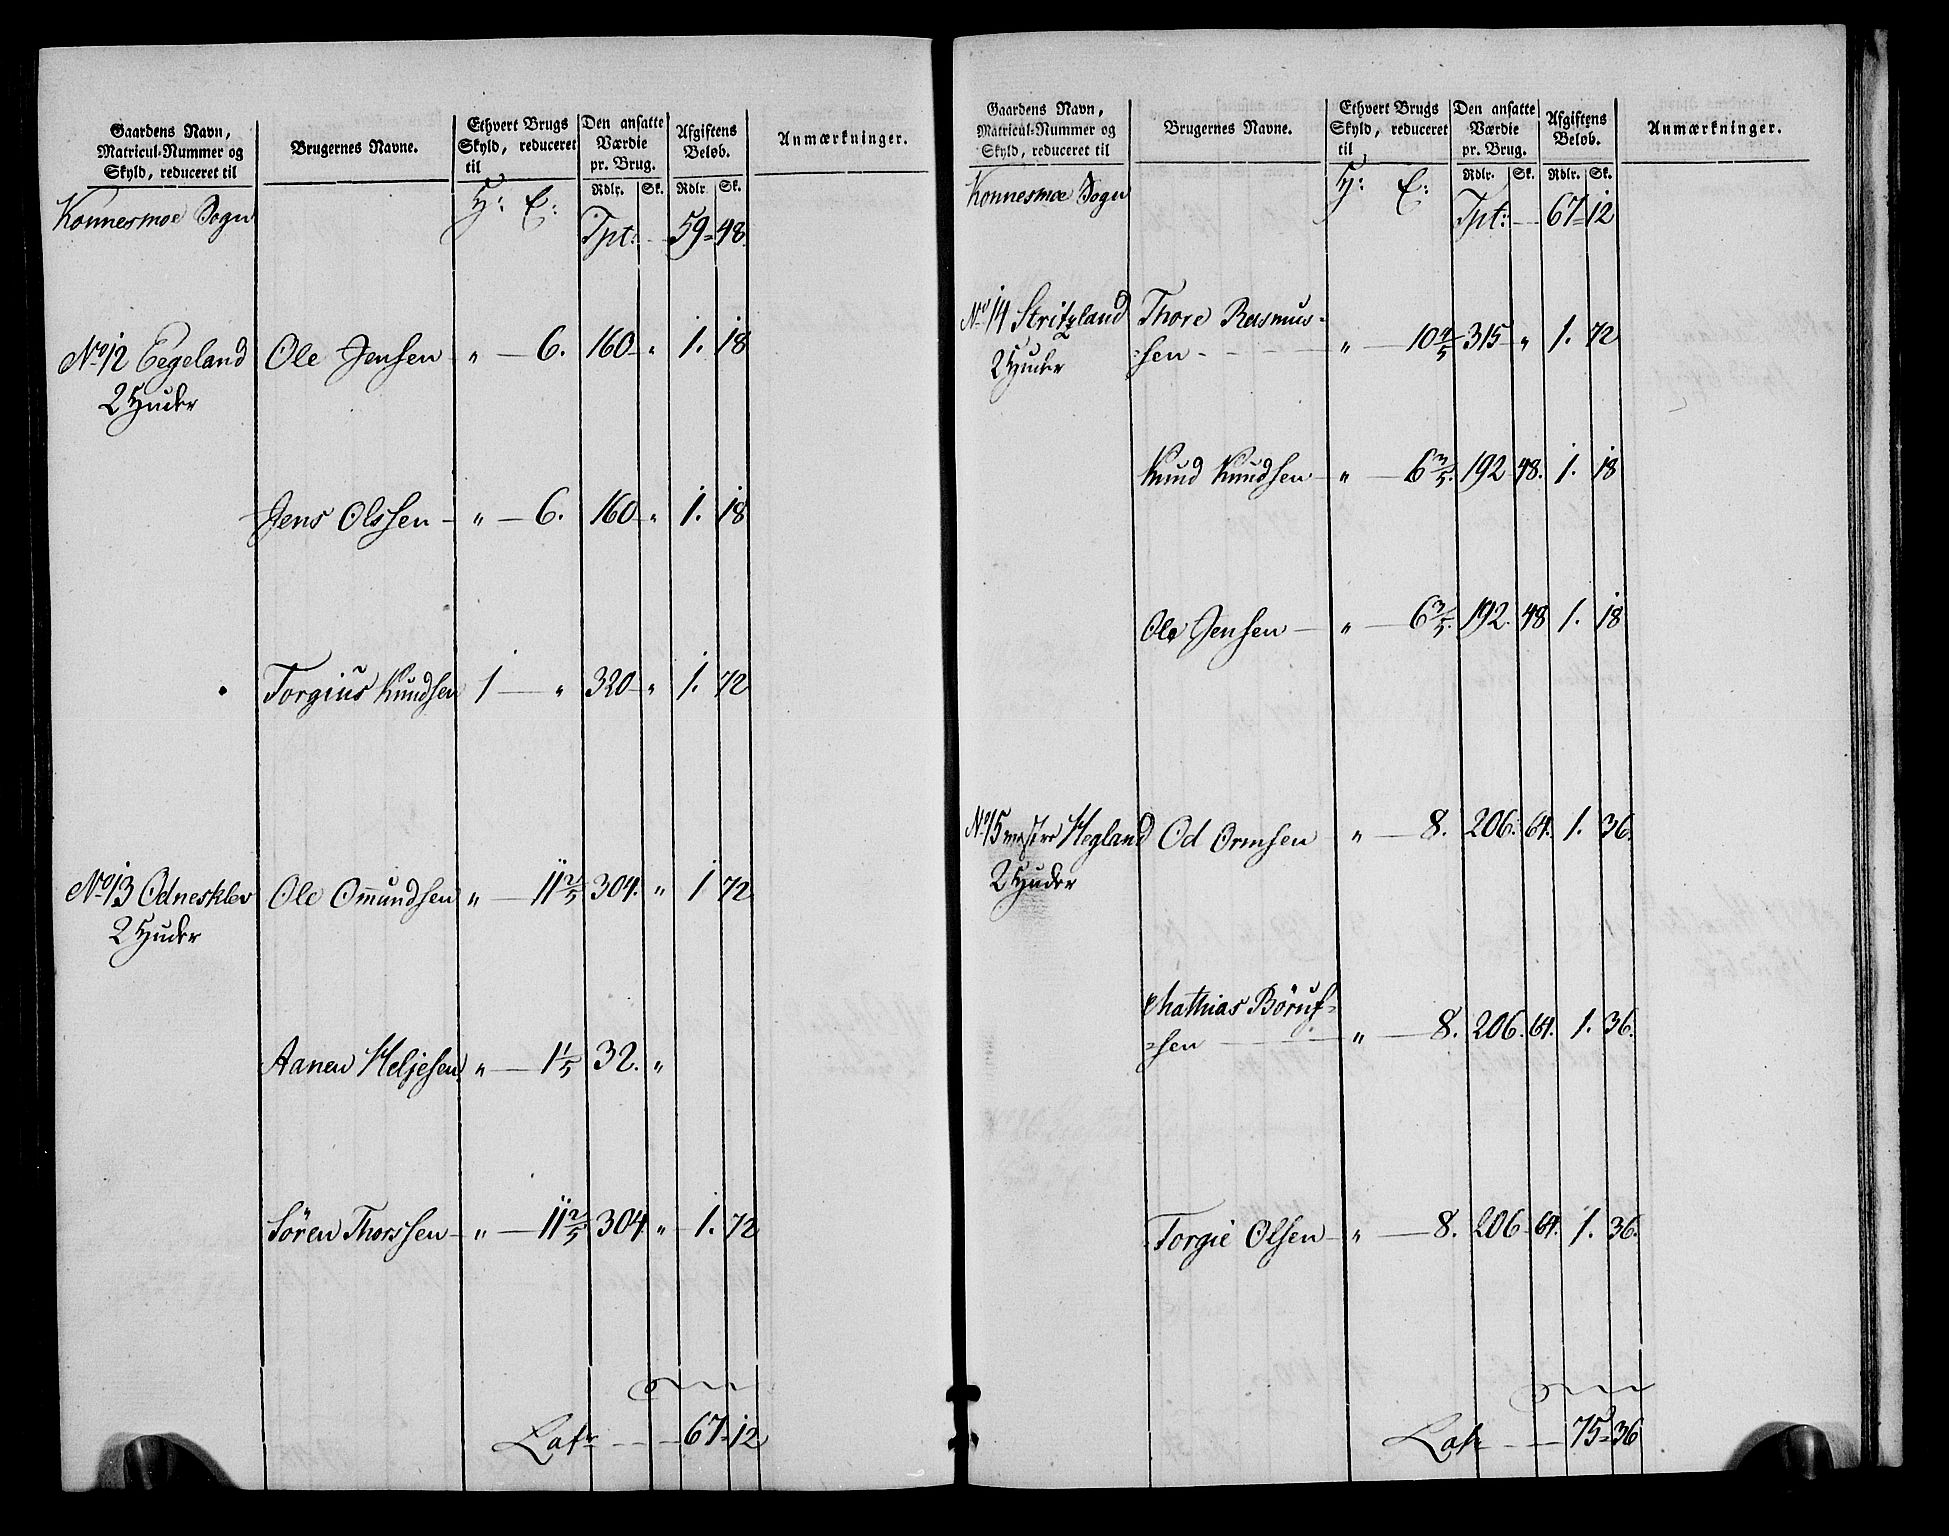 Gaardens Navn, Matricul-Nummer og Skyld, reduceret til
Brugernes Navne.
Ethvert Brugs Skyld, reduceret til
Den ansatte Værdie pr. Brug.
Afgiftens Beløb.
Anmærkninger.
Rdlr. Sk. Rdlr. Sk.
Konnesmoe Sogn H: E: Tpt: 59 = 48.
No 12 Eegeland Ole Jensen „ 6. 160 „ 1. 18
2 Huder
Jens Olssen „ 6. 160 „ 1. 18
Torgius Knudsen 1 „ 320 „ 1. 72
No 13 Odnesklev Ole Omundsen „ 11 2/5 304. „ 1 72
2 Huder
Aanen Heljesen „ 1 1/5 32. „
Sören Thorssen „ 11 2/5 304 „ 1. 72
Latr 67 = 12
Gaardens Navn, Matricul-Nummer og Skyld, reduceret til
Brugernes Navne.
Ethvert Brugs Skyld, reduceret til
Den ansatte Værdie pr. Brug.
Afgiftens Beløb.
Anmærkninger.
Rdlr. Sk. Rdlr. Sk.
Konnesmoe Sogn H: E: Tpt: 67 = 12
No 14 Stritzland Thore Rasmus-
2 Huder =sen „ 10 4/5 315 „ 1. 72
Knud Knudsen „ 6 3/5. 192 48. 1. 18
Ole Jensen „ 6 3/5. 192. 48 1. 18
No 15 westre Hegland Od Ormsen „ 8. 206. 64. 1. 36.
2 Huder
Mathias Böruf=
=sen „ 8. 206. 64. 1. 36.
Torgie Olsen „ 8. 206 64. 1. 36.
Latr 75 = 36